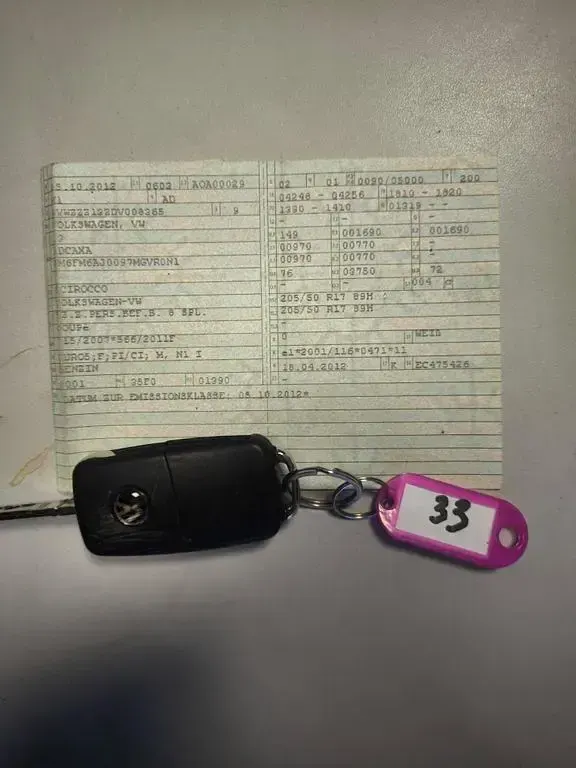 5.10.2012 0603 AOA00029
1 AD
VWZZZ13ZDV008365 9
OLKSWAGEN, VW
3
DCAXA
M6FM6AJ0097MGVR0N1
-
CIROCCO
OLKSWAGEN-VW
Z.Z.PERS.BEF.B. 8 SPL.
OUPE
15/2007*566/2011F
URO5;F;PI/CI; M, N1 I
ENZIN
0001 35F0 01390
DATUM ZUR EMISSIONSKLASSE: 05.10.2012*
02 01 0090/05000 200
04248 - 04256 1810 - 1820
1390 - 1410 01319 - -
- - -
149 001690 001690
00970 00770 -
00970 00770 -
76 03750 72
- - 004
205/50 R17 89H
205/50 R17 89H
-
- WEIß
0
e1*2001/116*0471*11
18.04.2012 K EC475426
-
33